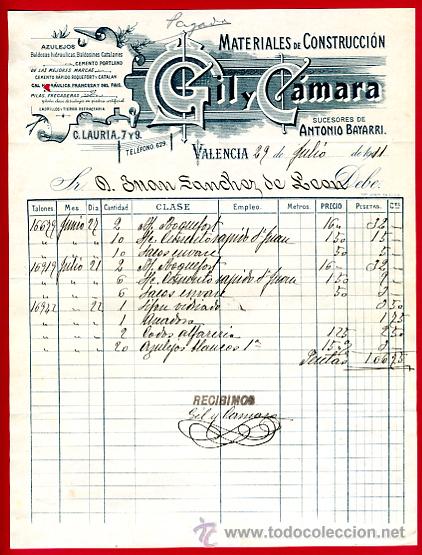 Pagada
AZULEJOS
Baldosas hidráulicas. Baldosines Catalanes
CEMENTO PORTLAND
DE LAS MEJORES MARCAS
CEMENTO RÁPIDO ROQUEFORT Y CATALÁN
CAL HIDRÁULICA FRANCESA Y DEL PAÍS.
PILAS, FREGADERAS
LADRILLOS Y TIERRA REFRACTARIA
C. LAURIA, 7 Y 9.
TELÉFONO 629
MATERIALES DE CONSTRUCCIÓN
Gil y Cámara
SUCESORES DE
ANTONIO BAYARRI.
VALENCIA 29 de Julio de 1911
Sr. D. Juan Sanchez de Leon Debe:
Talones. Mes. Dia. Cantidad CLASE Empleo. Metros. PRECIO PESETAS. Cts
16679 Junio 27 2 Roquefort 16 - 32 -
" " " 10 rapido d' Juan 1 50 15 -
" " " 10 Sacos envase 50 5 -
16919 Julio 21 2 Roquefort 16 - 32 -
" " " 6 rapido d' Juan 1 50 9 -
" " " 6 Sacos envase 50 3 -
16922 " 22 1 Sifon vidriado 3 50
" " " 1 1 75
" " " 2 Codos alfareria 1 25 2 50
" " " 20 Azulejos blancos 1ª 15 3 -
Pesetas 106 75
RECIBIMOS
Gil y Camara
todocoleccion
www.todocoleccion.net